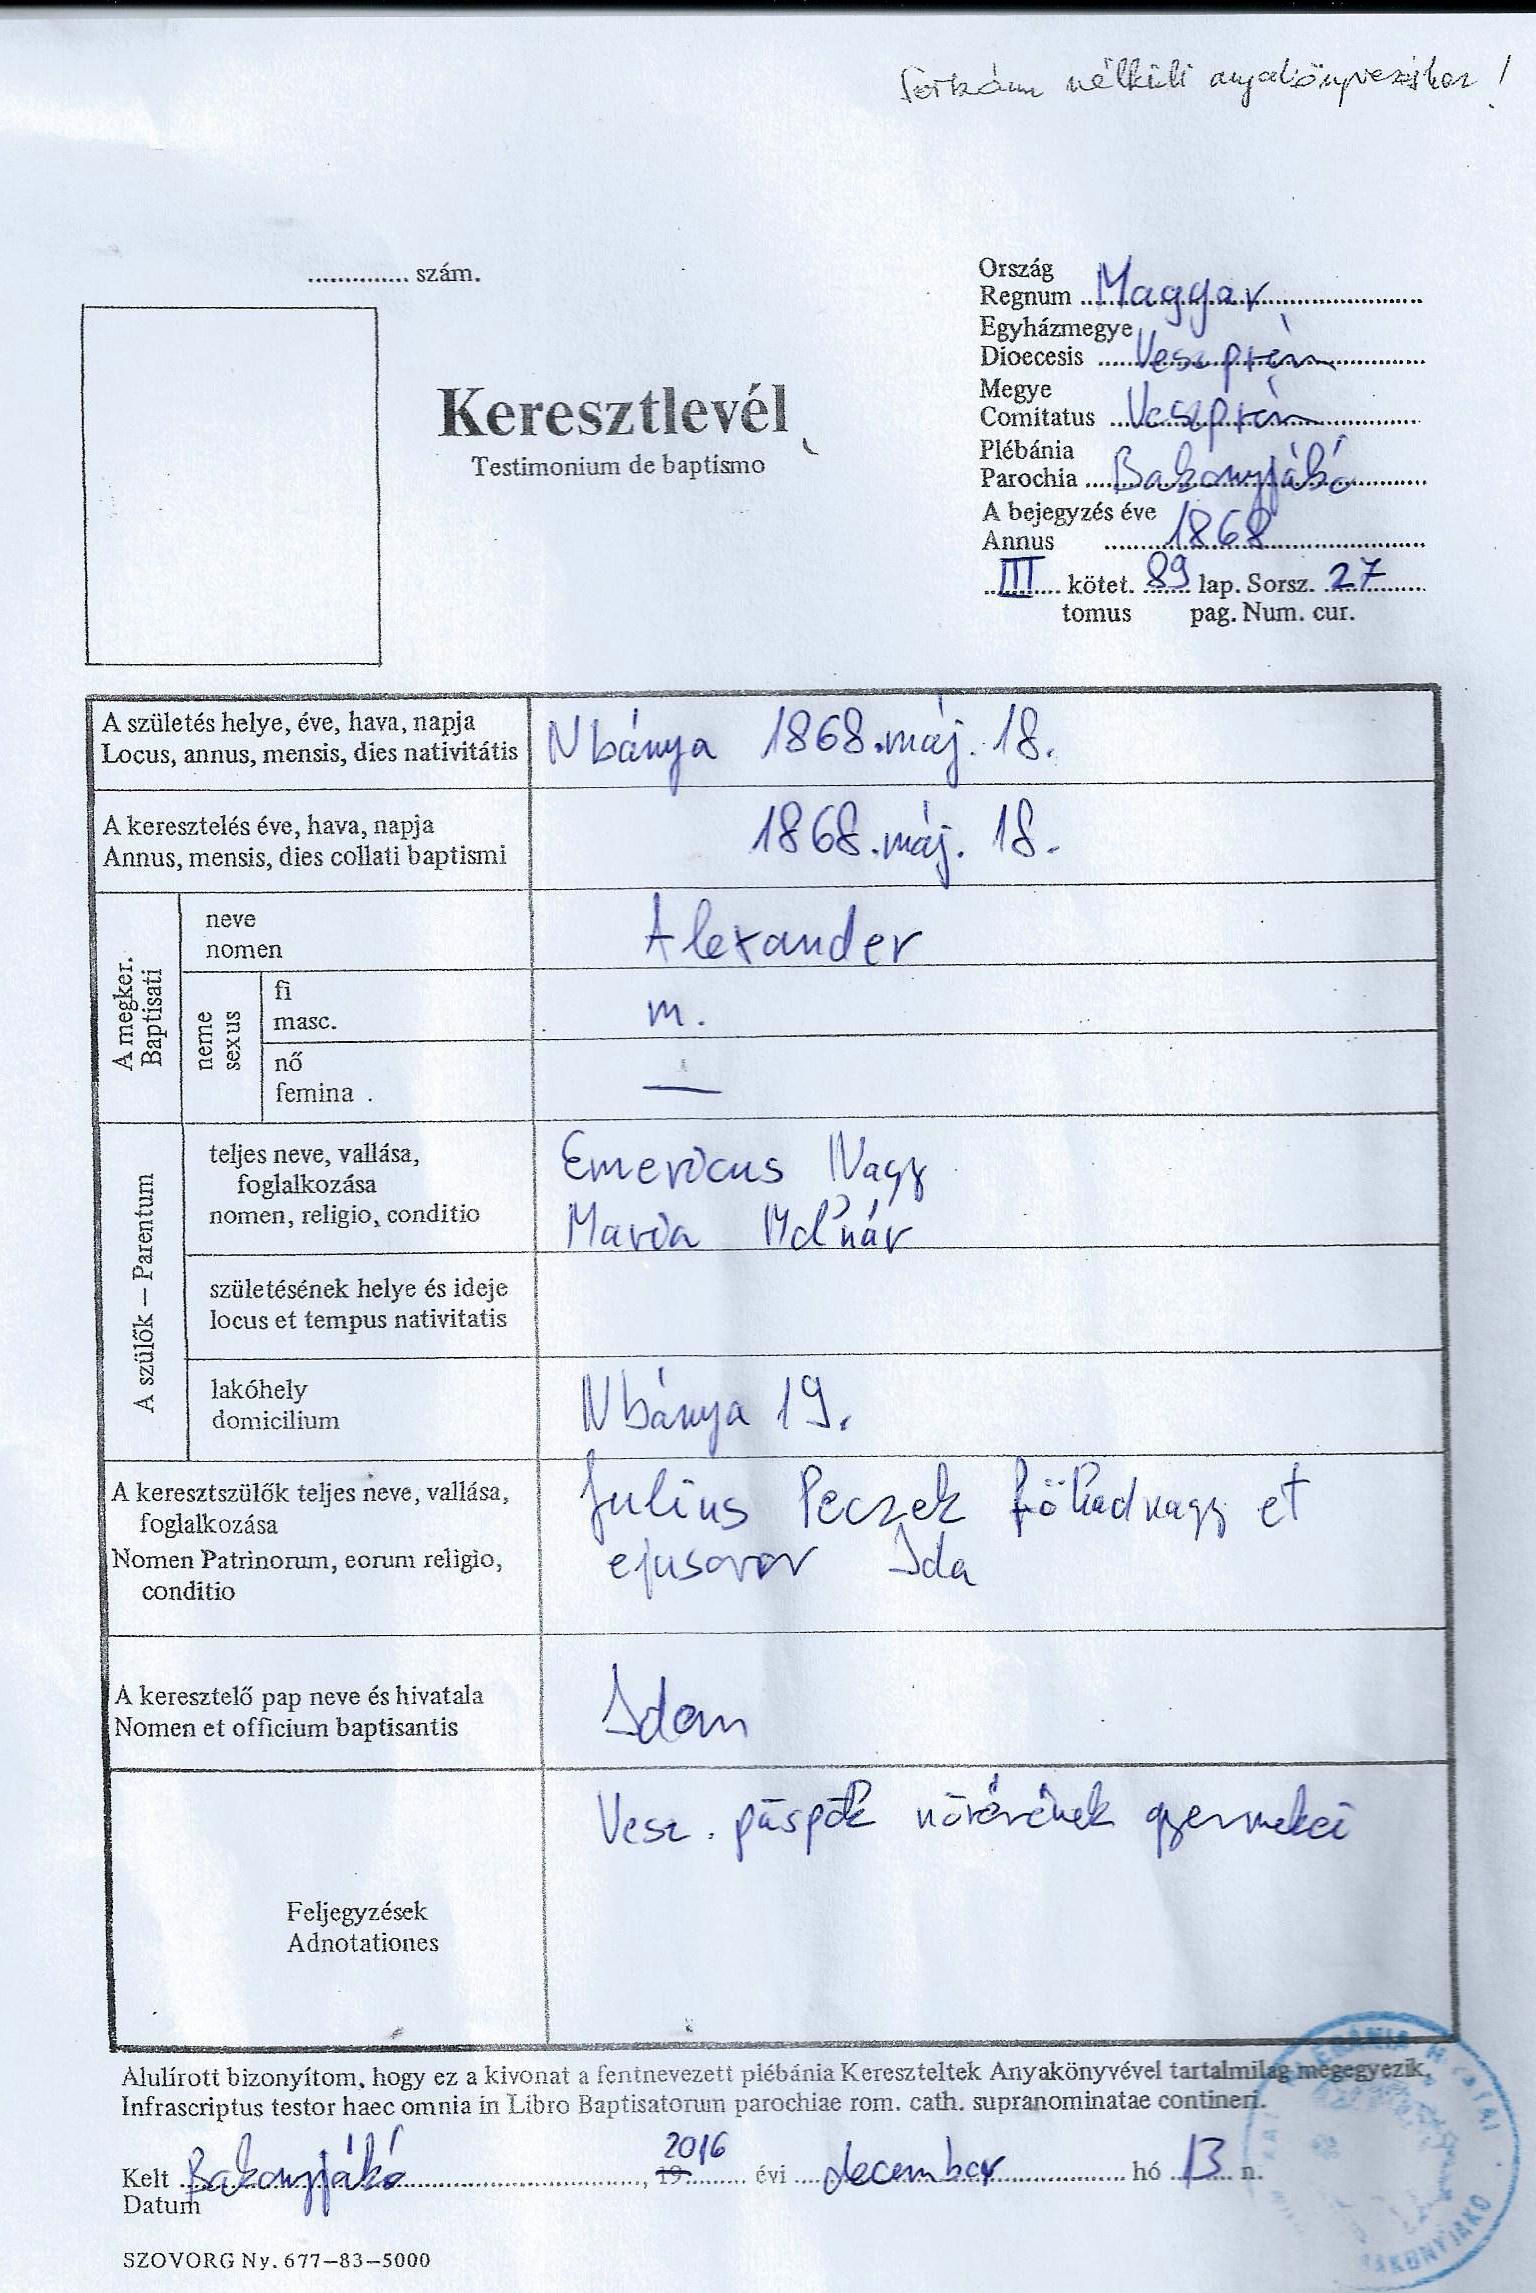 nélküli anyakönyvezéshez !
.............. szám.
Ország
Regnum Magyar
Egyházmegye
Dioecesis Veszprém
Megye
Comitatus Veszprém
Plébánia
Parochia Bakonyjákó
A bejegyzés éve
Annus 1868
III kötet. 89 lap. Sorsz. 27
tomus pag. Num. cur.
Keresztlevél
Testimonium de baptismo
A születés helye, éve, hava, napja
Locus, annus, mensis, dies nativitátis
Nbánya 1868. máj. 18.
A keresztelés éve, hava, napja
Annus, mensis, dies collati baptismi
1868. máj. 18.
A megker.
Baptisati
neve
nomen
Alexander
neme
sexus
fi
masc.
m.
nő
femina .
—
A szülők — Parentum
teljes neve, vallása,
foglalkozása
nomen, religio, conditio
Emericus Nagy
Maria Molnár
születésének helye és ideje
locus et tempus nativitatis
lakóhely
domicilium
Nbánya 19.
A keresztszülők teljes neve, vallása,
foglalkozása
Nomen Patrinorum, eorum religio,
conditio
Julius Peczek főhadnagy et
ejusoror Ida
A keresztelő pap neve és hivatala
Nomen et officium baptisantis
Idem
Feljegyzések
Adnotationes
Vesz. püspök nővérének gyermekei
Alulírott bizonyítom, hogy ez a kivonat a fentnevezett plébánia Kereszteltek Anyakönyvével tartalmilag megegyezik.
Infrascriptus testor haec omnia in Libro Baptisatorum parochiae rom. cath. supranominatae contineri.
Kelt Bakonyjákó, 19 2016 évi december hó 13 n.
Datum
PLÉBÁNIA HIVATAL
BAKONYJÁKÓ
SZOVORG Ny. 677–83–5000